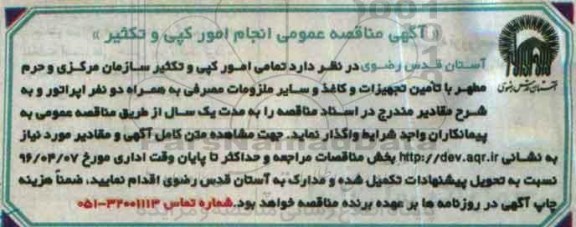 « آگهی مناقصه عمومی انجام امور کپی و تکثیر »
آستان قدس رضوی در نظر دارد تمامی امور کپی و تکثیر سازمان مرکزی و حرم
مطهر با تأمین تجهیزات و کاغذ و سایر ملزومات مصرفی به همراه دو نفر اپراتور و به
شرح مقادیر مندرج در اسناد مناقصه را به مدت یک سال از طریق مناقصه عمومی به
پیمانکاران واجد شرایط واگذار نماید. جهت مشاهده متن کامل آگهی و مقادیر مورد نیاز
به نشانی http://dev.aqr.ir بخش مناقصات مراجعه و حداکثر تا پایان وقت اداری مورخ ۹۶/۰۴/۰۷
نسبت به تحویل پیشنهادات تکمیل شده و مدارک به آستان قدس رضوی اقدام نمایید. ضمناً هزینه
چاپ آگهی در روزنامه ها بر عهده برنده مناقصه خواهد بود. شماره تماس ۳۲۰۰۱۱۱۳-۰۵۱
آستان قدس رضوی